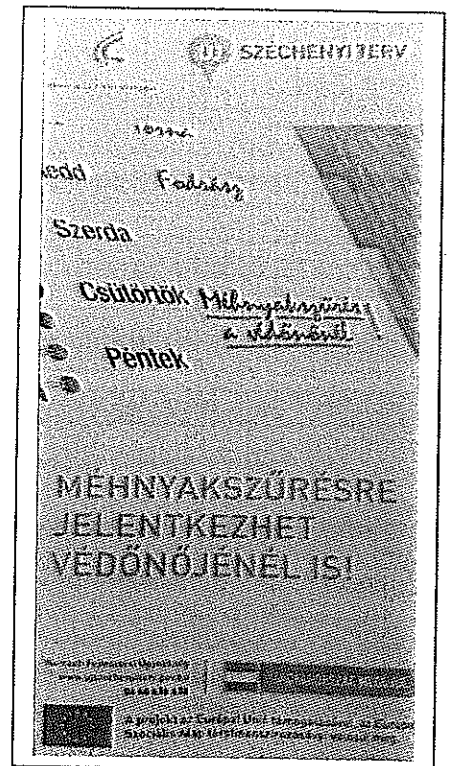 SZÉCHENYI TERV
Torna
Kedd
Fodrász
Szerda
Csütörtök Méhnyakszűrés
a védőnőnél
Péntek
MÉHNYAKSZŰRÉSRE
JELENTKEZHET
VÉDŐNŐJÉNÉL IS!
Nemzeti Fejlesztési Ügynökség
06 40 638 638
A projekt az Európai Unió támogatásával, az Európai
Szociális Alap társfinanszírozásával valósul meg.